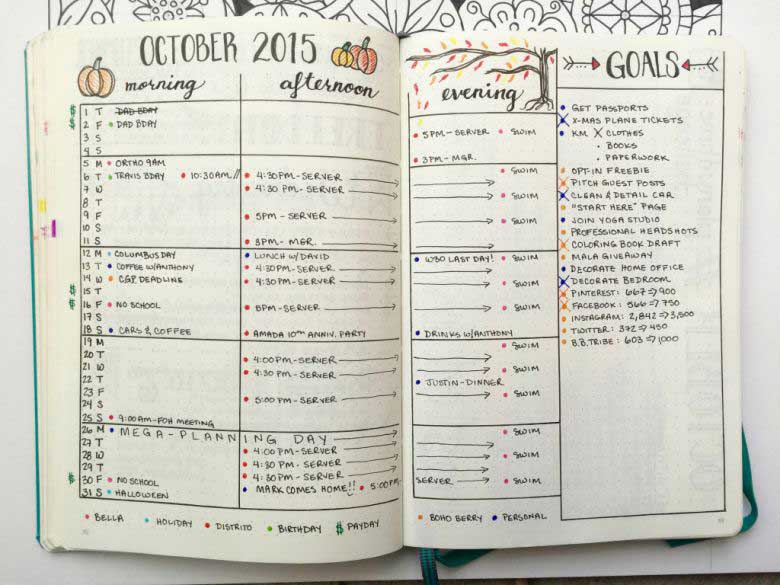 OCTOBER 2015
morning
afternoon
1 T DAD BDAY
$ 2 F DAD BDAY
3 S
4 S
5 M ORTHO 9AM
6 T TRAVIS BDAY 10:30AM // 4:30PM-SERVER
7 W 4:30 PM-SERVER
8 T
9 F 5PM-SERVER
10 S
11 S 3PM-MGR.
12 M COLUMBUS DAY LUNCH W/DAVID
13 T COFFEE W/ANTHONY 4:30PM-SERVER
14 W CGP DEADLINE 4:30PM-SERVER
15 T
$ 16 F NO SCHOOL 5PM-SERVER
17 S
18 S CARS & COFFEE AMADA 10TH ANNIV. PARTY
19 M
20 T 4:00PM-SERVER
21 W 4:30 PM-SERVER
22 T
23 F 5:00 PM-SERVER
24 S
25 S 9:00AM-FOH MEETING
26 M MEGA-PLANNING DAY
27 T 4:00PM-SERVER
28 W 4:30 PM-SERVER
29 T 4:30 PM-SERVER
$ 30 F NO SCHOOL MARK COMES HOME!! 5:00PM-
31 S HALLOWEEN
BELLA HOLIDAY DISTRITO BIRTHDAY $ PAYDAY
evening
5PM-SERVER SWIM
3PM-MGR.
SWIM
SWIM
SWIM
W30 LAST DAY! SWIM
SWIM
SWIM
DRINKS W/ANTHONY
SWIM
JUSTIN-DINNER SWIM
SWIM
SWIM
SWIM
SERVER SWIM
BOHO BERRY PERSONAL
GOALS
GET PASSPORTS
X-MAS PLANE TICKETS
KM X CLOTHES
BOOKS
PAPERWORK
OPT-IN FREEBIE
PITCH GUEST POSTS
CLEAN & DETAIL CAR
"START HERE" PAGE
JOIN YOGA STUDIO
PROFESSIONAL HEADSHOTS
COLORING BOOK DRAFT
MALA GIVEAWAY
DECORATE HOME OFFICE
DECORATE BEDROOM
PINTEREST: 667 ⇒ 900
FACEBOOK: 566 ⇒ 750
INSTAGRAM: 2,842 ⇒ 3,500
TWITTER: 372 ⇒ 450
B.B. TRIBE: 603 ⇒ 1000